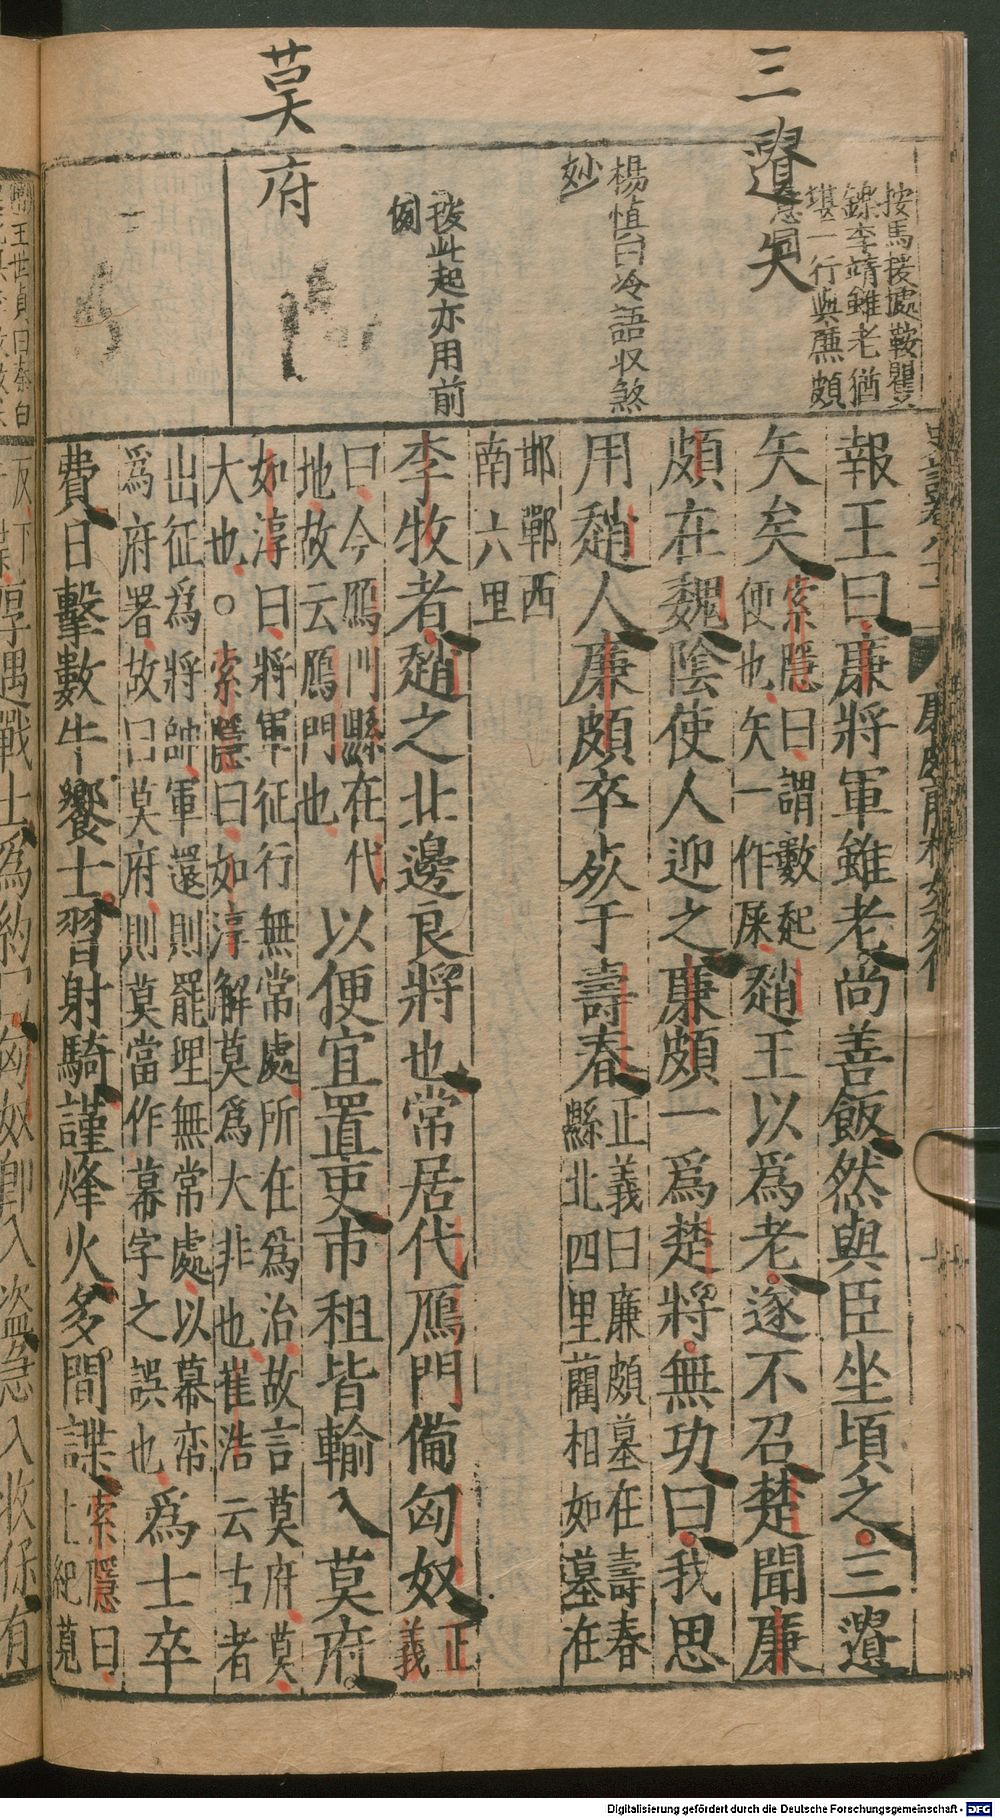 三遺矢
莫府
按馬援處鞍瞿
鑠李靖雖老猶
堪一行與廉頗
意同
楊慎曰冷語収煞
妙
發此起亦用前
例
報王曰廉將軍雖老尚善飯然與臣坐頃之三遺
矢矣
索隱曰謂數起
便也矢一作屎
趙王以爲老遂不召楚聞廉
頗在魏陰使人迎之廉頗一爲楚將無功曰我思
用趙人廉頗卒死于壽春
正義曰廉頗墓在壽春
縣北四里藺相如墓在
邯鄲西
南六里
李牧者趙之北邊良將也常居代鴈門備匈奴
正
義
曰今鴈川縣在代
地故云鴈門也
以便宜置吏市租皆輸入莫府
如淳曰將軍征行無常處所在爲治故言莫府莫
大也○索隱曰如淳解莫爲大非也崔浩云古者
出征爲將帥軍還則罷理無常處以幕帟
爲府署故曰莫府則莫當作幕字之誤也
爲士卒
費日擊數牛饗士習射騎謹烽火多間諜
索隱曰
上紀莧
Digitalisierung gefördert durch die Deutsche Forschungsgemeinschaft - DFG